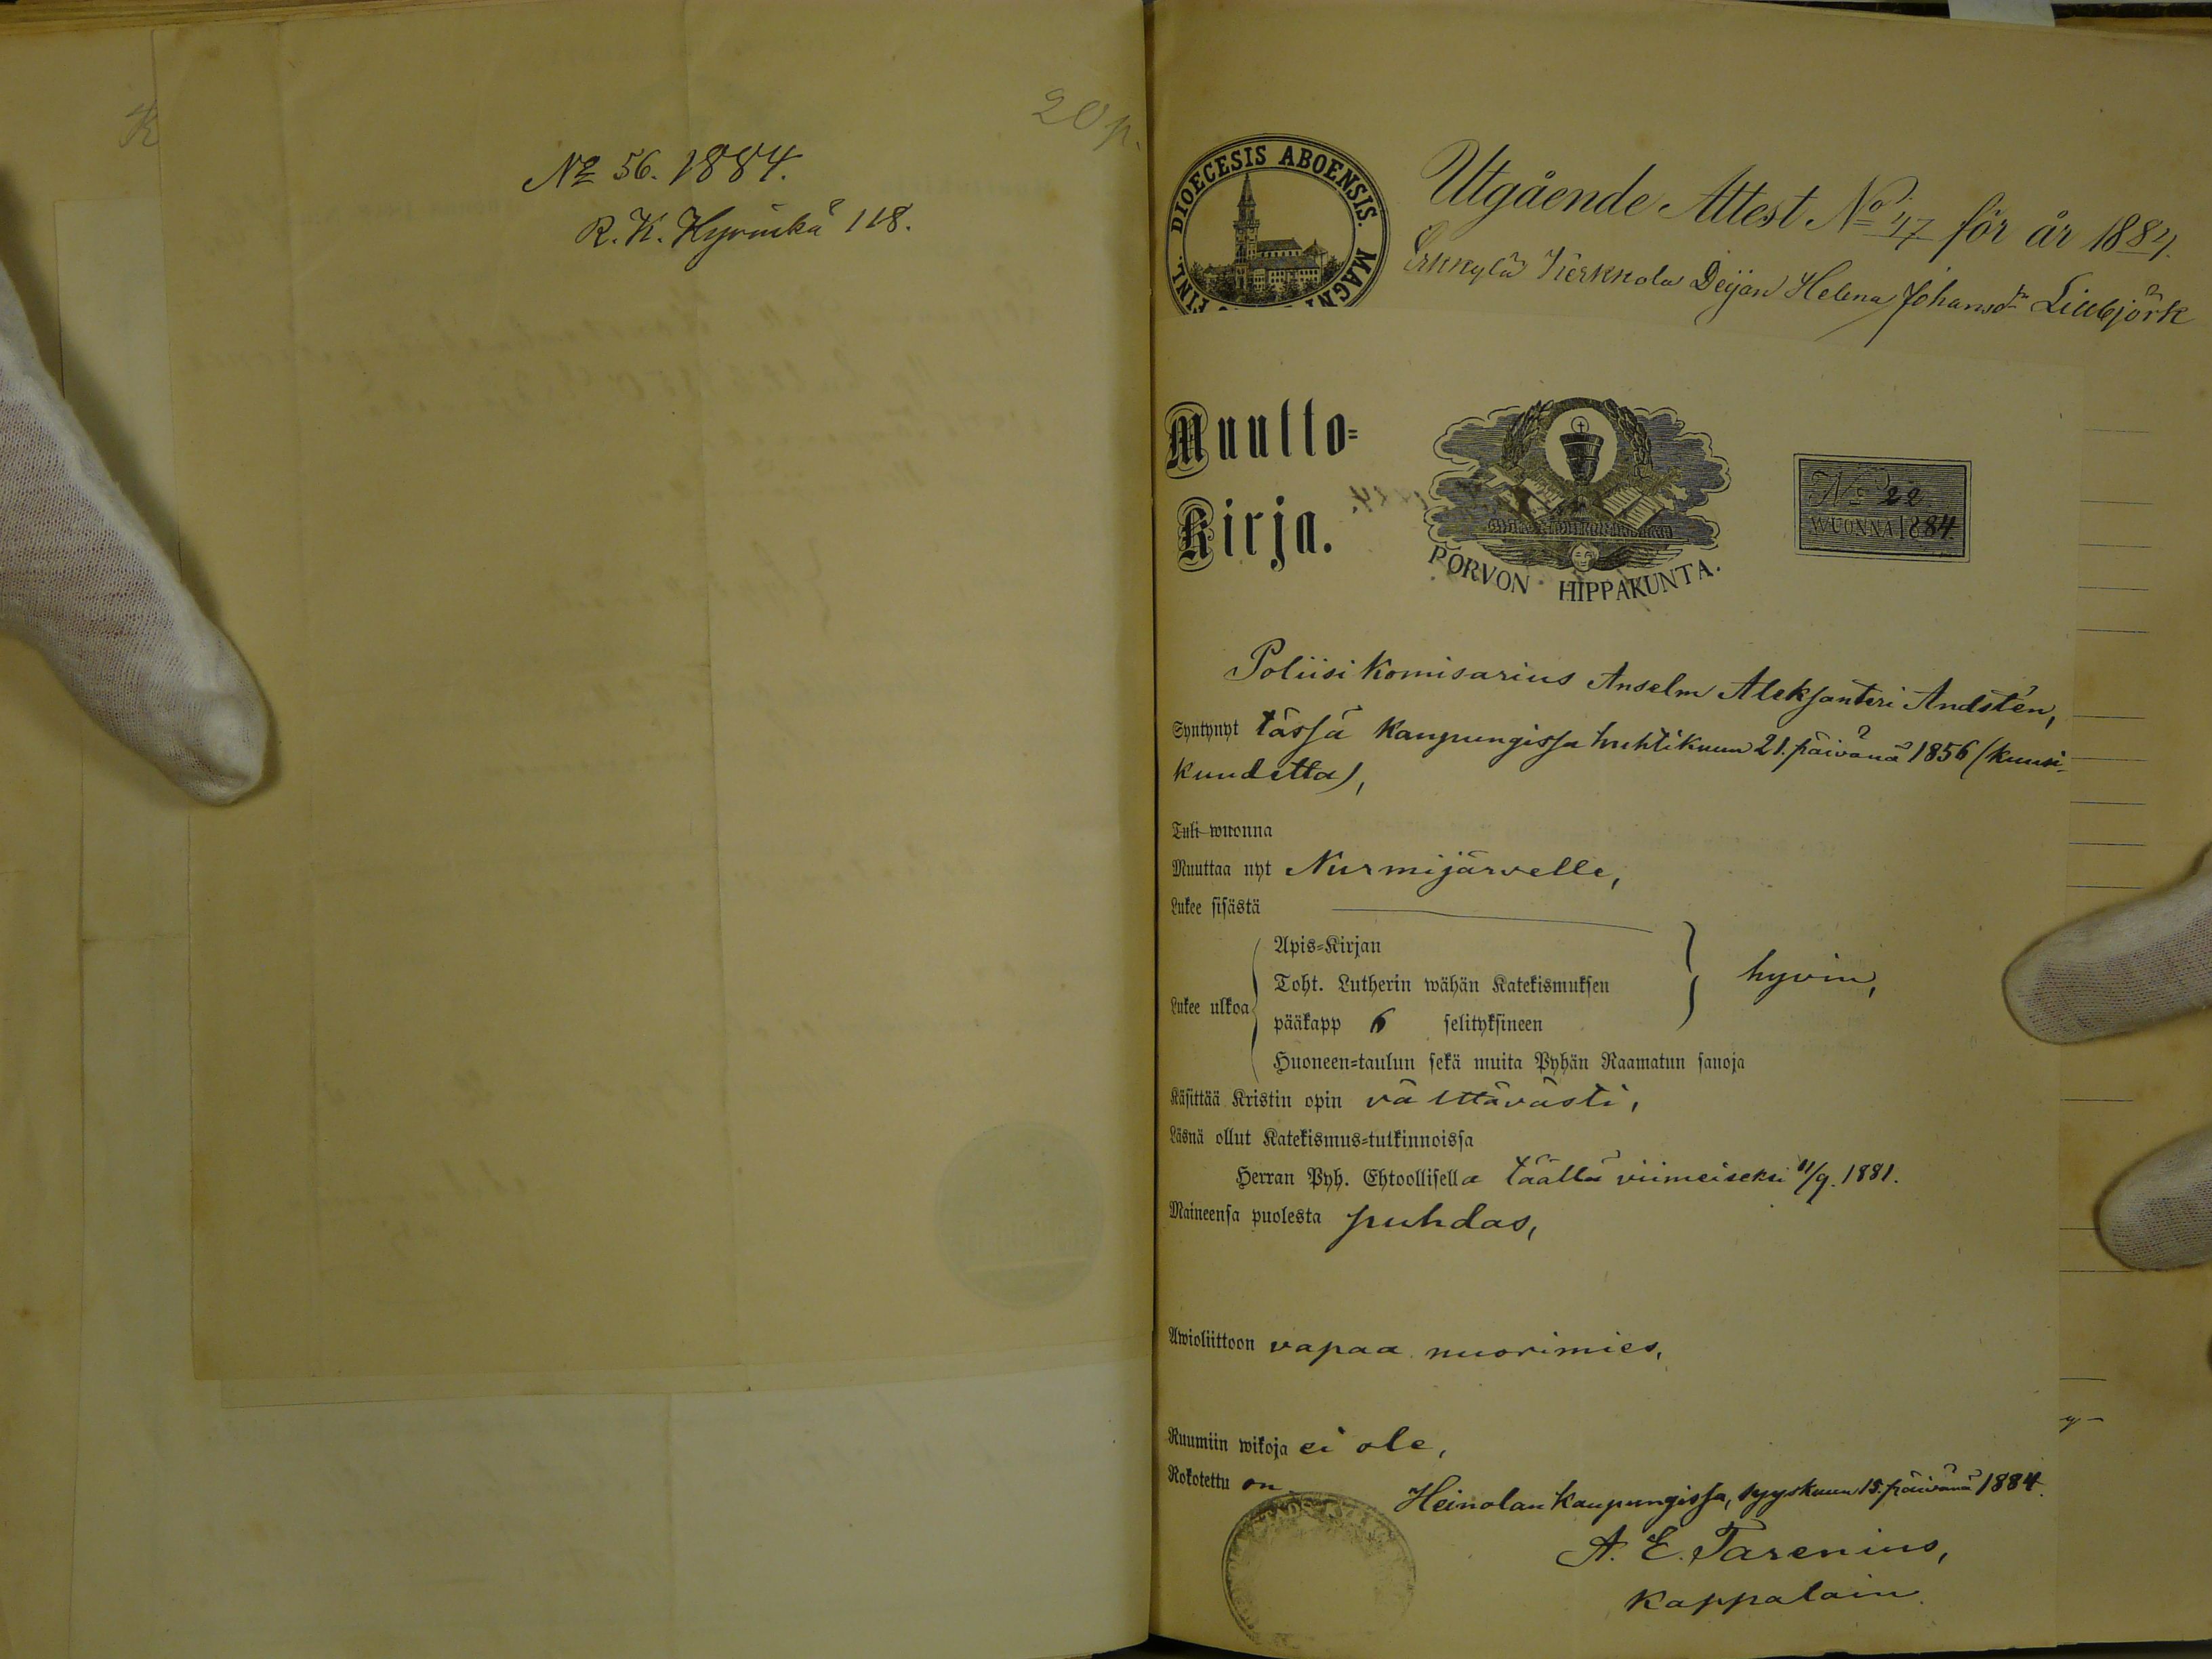 20 p.
No 56. 1884.
R. K. Hyvinkä 118.
DIOECESIS ABOENSIS. MAGNI FINL.
Utgående Attest No 47 för år 1884.
Erkkylä Kerkkola Deijan Helena Johansdr Lillbjörk
Muutto-
Kirja.
PORVON HIPPAKUNTA.
No 22
WUONNA 1884
Poliisi Komisarius Anselm Aleksanteri Andstén,
Syntynyt tässä kaupungissa huhtikuun 21. päivänä 1856 (kuusi-
kuudetta),
Tuli wuonna
Muuttaa nyt Nurmijärvelle,
Lukee sisästä
Apis-Kirjan
Toht. Lutherin wähän Katekismuksen
hyvin,
Lukee ulkoa
pääkapp 6 selityksineen
Huoneen-taulun sekä muita Pyhän Raamatun sanoja
Käsittää Kristin opin välttävästi,
Läsnä ollut Katekismus-tutkinnoissa
Herran Pyh. Ehtoollisella täällä viimeiseksi 11/9. 1881.
Maineensa puolesta puhdas,
Awioliittoon vapaa nuorimies,
Ruumiin wikoja ei ole,
Rokotettu on.
Heinolan kaupungissa, syyskuun 15. päivänä 1884.
A. E. Tarenius,
kappalain.